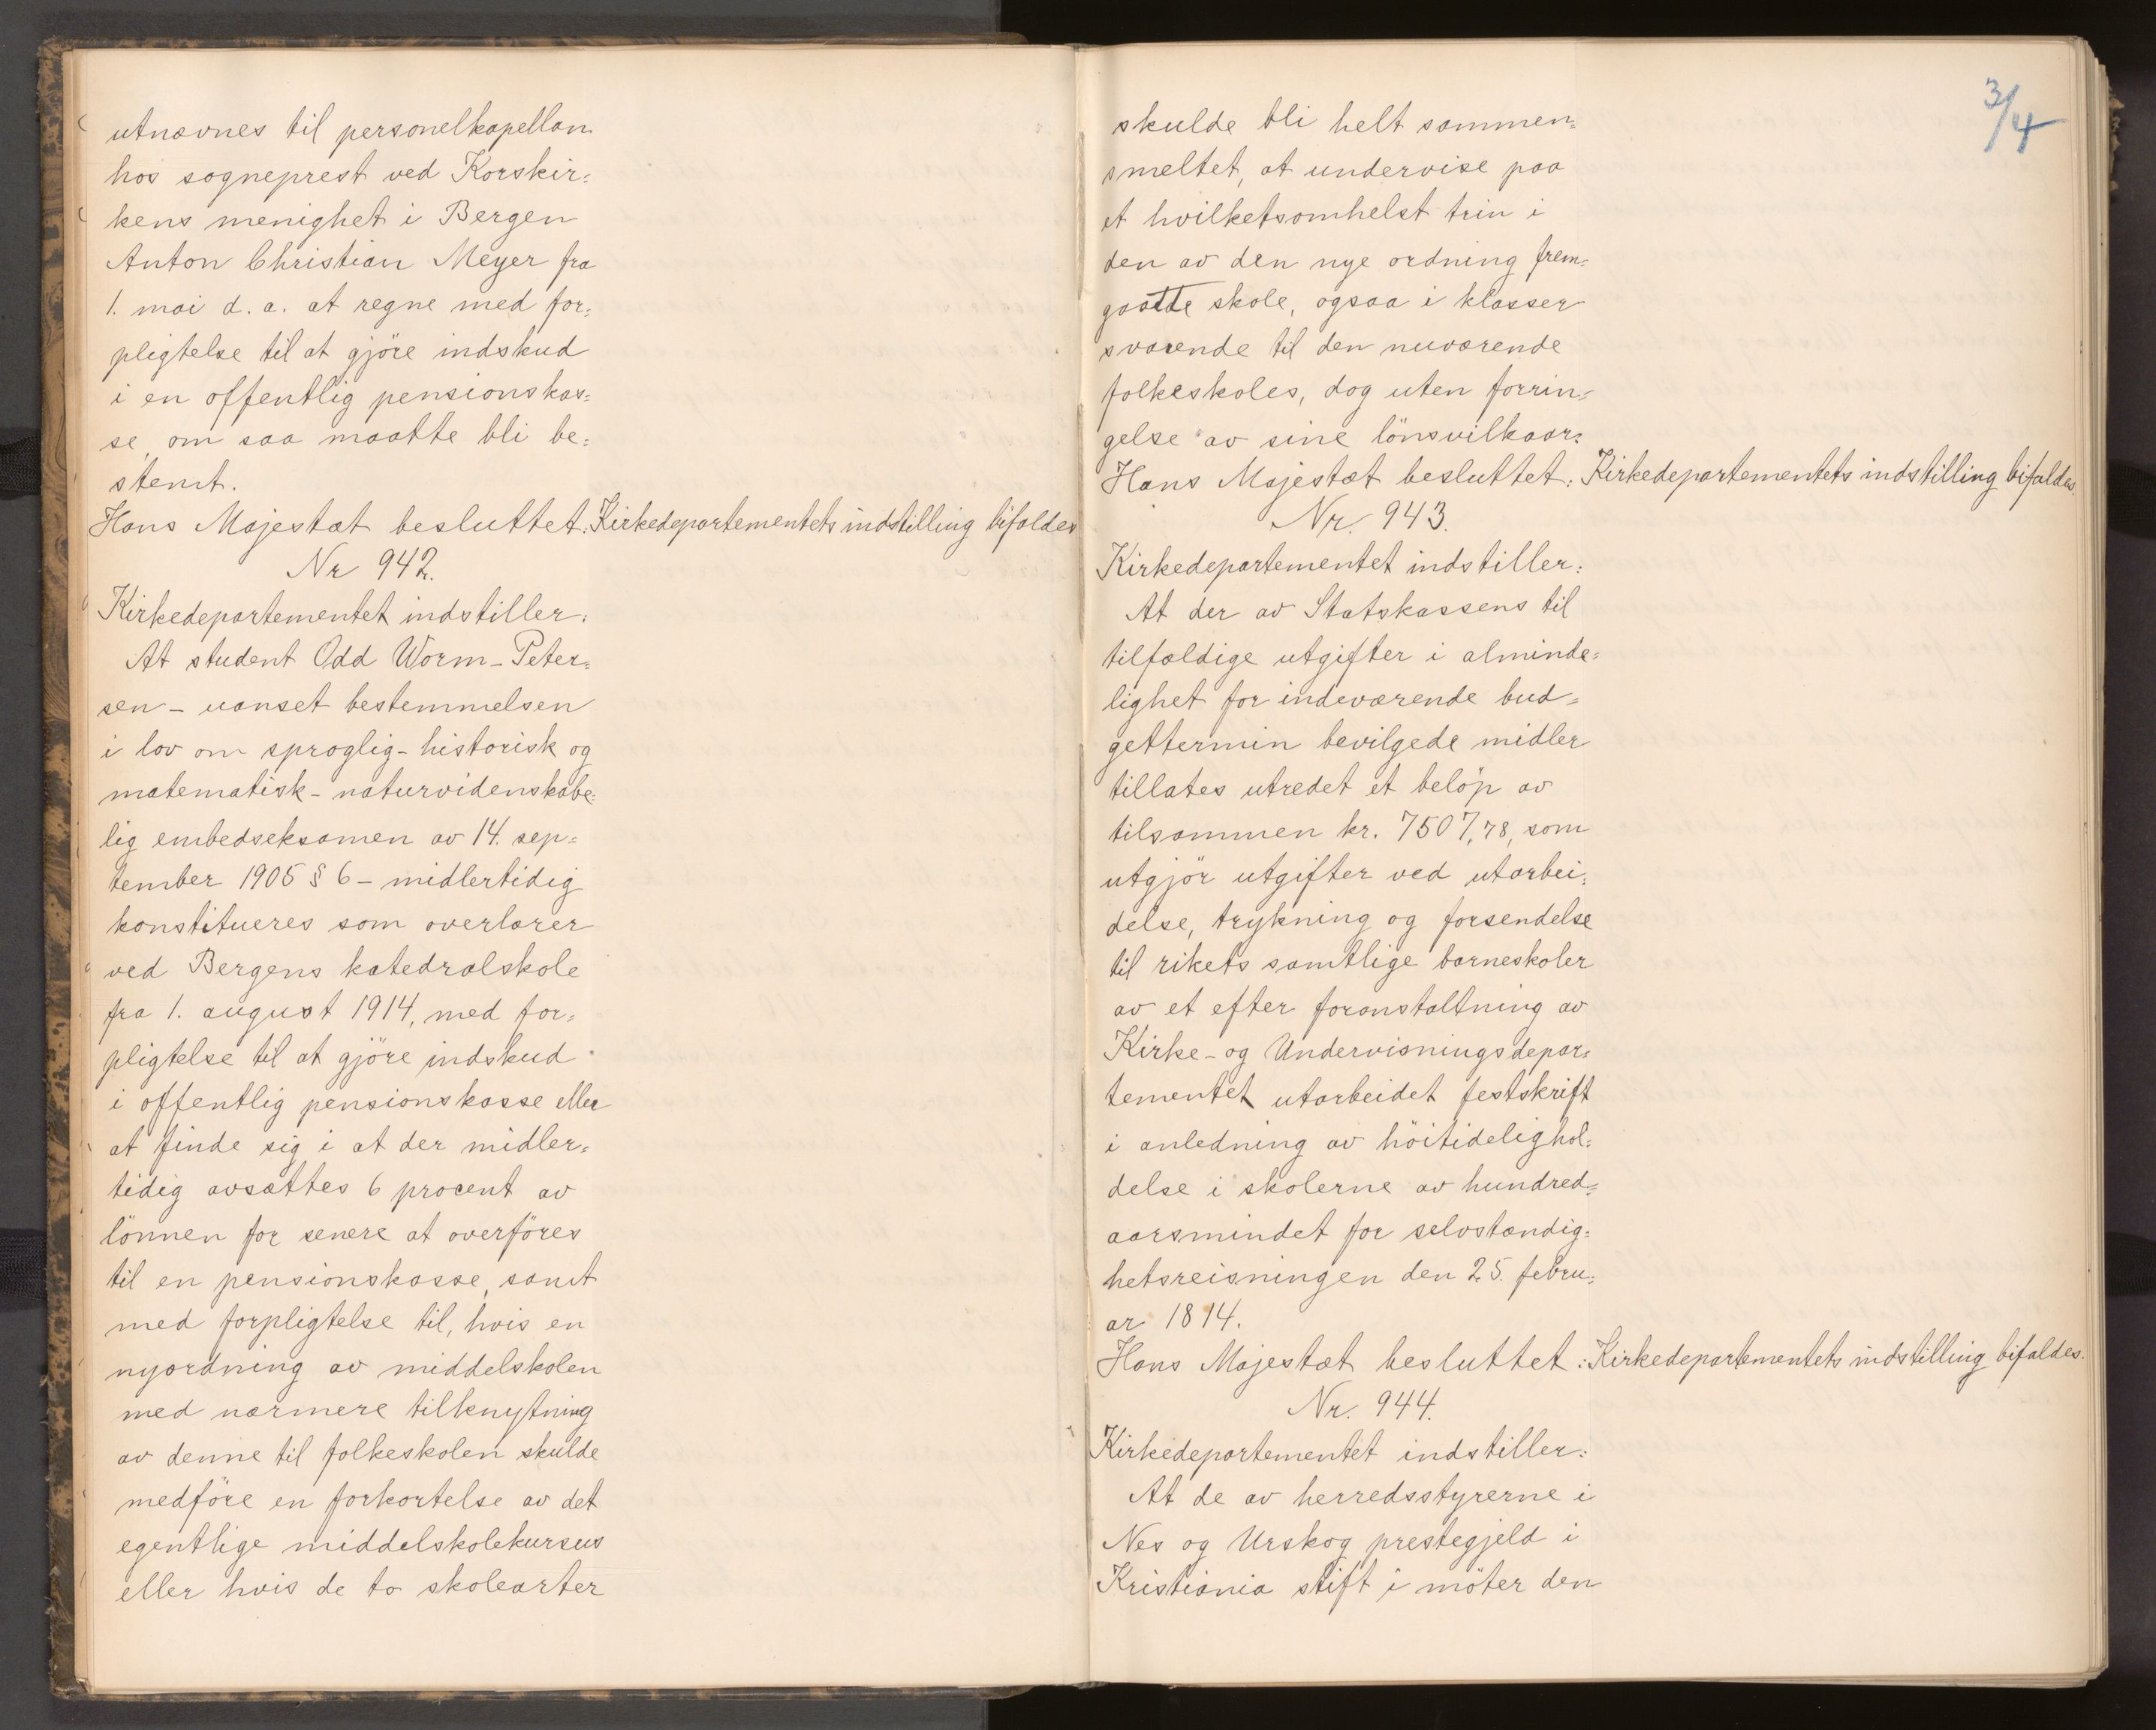 utnævnes til personelkapellan
hos sogneprest ved Korskir=
kens menighet i Bergen
Anton Christian Meyer fra
1. mai d. a. at regne med for=
pligtelse til at gjöre indskud
i en offentlig pensionskas=
se, om saa maatte bli be=
stemt.
Hans Majestæt besluttet: Kirkedepartementets indstilling bifaldes
Nr 942.
Kirkedepartementet indstiller:
At student Odd Worm-Peter=
sen - uanset bestemmelsen
i lov om sproglig-historisk og
matematisk-naturvidenskabe=
lig embedseksamen av 14. sep=
tember 1905 § 6 - midlertidig
konstitueres som overlærer
ved Bergens katedralskole
fra 1. august 1914, med for=
pligtelse til at gjöre indskud
i offentlig pensionskasse eller
at finde sig i at der midler=
tidig avsættes 6 procent av
lönnen for senere at overföres
til en pensionskasse, samt
med forpligtelse til, hvis en
nyordning av middelskolen
med nærmere tilknytning
av denne til folkeskolen skulde
medföre en forkortelse av det
egentlige middelskolekursus
eller hvis de to skolearter
3/4
skulde bli helt sammen=
smeltet, at undervise paa
et hvilketsomhelst trin i
den av den nye ordning frem=
gaatte skole, ogsaa i klasser
svarende til den nuværende
folkeskoles, dog uten forrin=
gelse av sine lönsvilkaar:
Hans Majestæt besluttet: Kirkedepartementets indstilling bifaldes.
Nr. 943.
Kirkedepartementet indstiller:
At der av Statskassens til
tilfældige utgifter i alminde=
lighet for indeværende bud=
gettermin bevilgede midler
tillates utredet et belöp av
tilsammen kr. 7507,78, som
utgjör utgifter ved utarbei=
delse, trykning og forsendelse
til rikets samtlige barneskoler
av et efter foranstaltning av
Kirke- og Undervisningsdepar=
tementet utarbeidet festskrift
i anledning av höitidelighol=
delse i skolerne av hundred=
aarsmindet for selvstændig=
hetsreisningen den 25. febru=
ar 1814.
Hans Majestæt besluttet: Kirkedepartementets indstilling bifaldes.
Nr. 944.
Kirkedepartementet indstiller:
At de av herredsstyrerne i
Nes og Urskog prestegjeld i
Kristiania stift i möter den